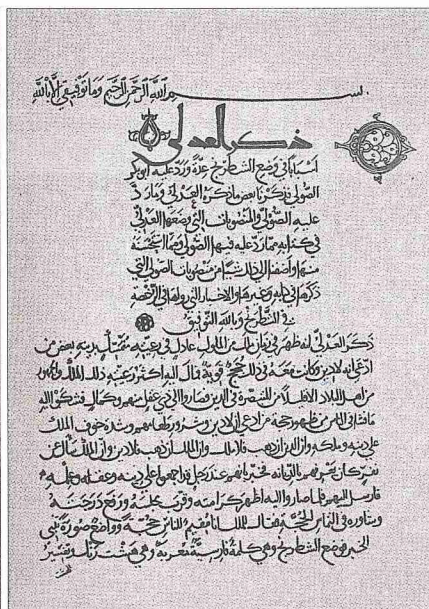 بسم الله الرحمن الرحيم وما توفيقي إلا بالله
ذكر العدلي
أسبابا في وضع الشطرنج عدة ورد عليه أبو بكر
الصولي فذكرنا بعض ما ذكره العدلي وما رد
عليه الصولي والمنصوبات التي وضعها العدلي
في كتابه مما رد عليه فيها الصولي
منها وأضفنا إلى ذلك شيئا من منصوبات الصولي التي
ذكرها في كتابه وغيرها والأخبار التي رواها في الرخصة
في الشطرنج وبالله التوفيق
ذكر العدلي أنه ظهر في زمان ملك من الملوك عادل في رعيته بدينه بعض من
ادعى أنه لا دين وكانت معه في ذلك حجج قوية فمال إليه أكثر رعية ذلك الملك
من أهل البلاد إلا قليلا من في الدين فصاروا إلى ذي عقل منهم وكمال فشكوا إليه
ما فشا في الناس من ظهور حجة من ادعى أن لا دين وشدة خوف الملك
على دينه وملكه وأن الدين إن ذهب فلا ملك وإن الملك إن ذهب فلا دين وأن الملك سأل عن
نفر كان بينهم عند رجل قد اجمعوا على دينه وعقله وعلمه
فأرسل إليهم فلما صاروا إليه أظهر كرامته وقرب مجلسه ورفع درجته
وشاوره في الناس فقال للملك أنا مقيم للناس حجة وواضع صورة تبين
الخبر فوضع الشطرنج وهي كلمة فارسية معربة وهي هشت وتفسير